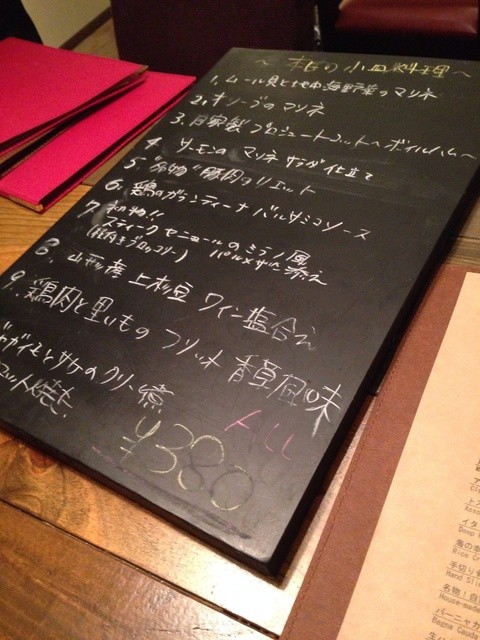 ～ 本日の小皿料理 ～
1, ムール貝と地中海野菜のマリネ
2, オリーブのマリネ
3, 自家製プロシュートコット～ボイルハム～
4, サーモンのマリネ サラダ仕立て
5, "名物" 豚肉のリエット
6, 鶏のガランティーナ バルサミコソース
7, 初物!!
スティークセニョールのミラノ風
(茎付きブロッコリー) パルメザン添え
8, 山形産 上枝豆 ワイン塩合え
9, 鶏肉と里いものフリット 香草風味
ジャガイモとサケのクリーム煮
コット焼き
ALL
¥380
イタ
Deep
海の幸
Rice C
手切り
Hand Sli
名物！自
House-made
バーニャカ
Bagna Cauda